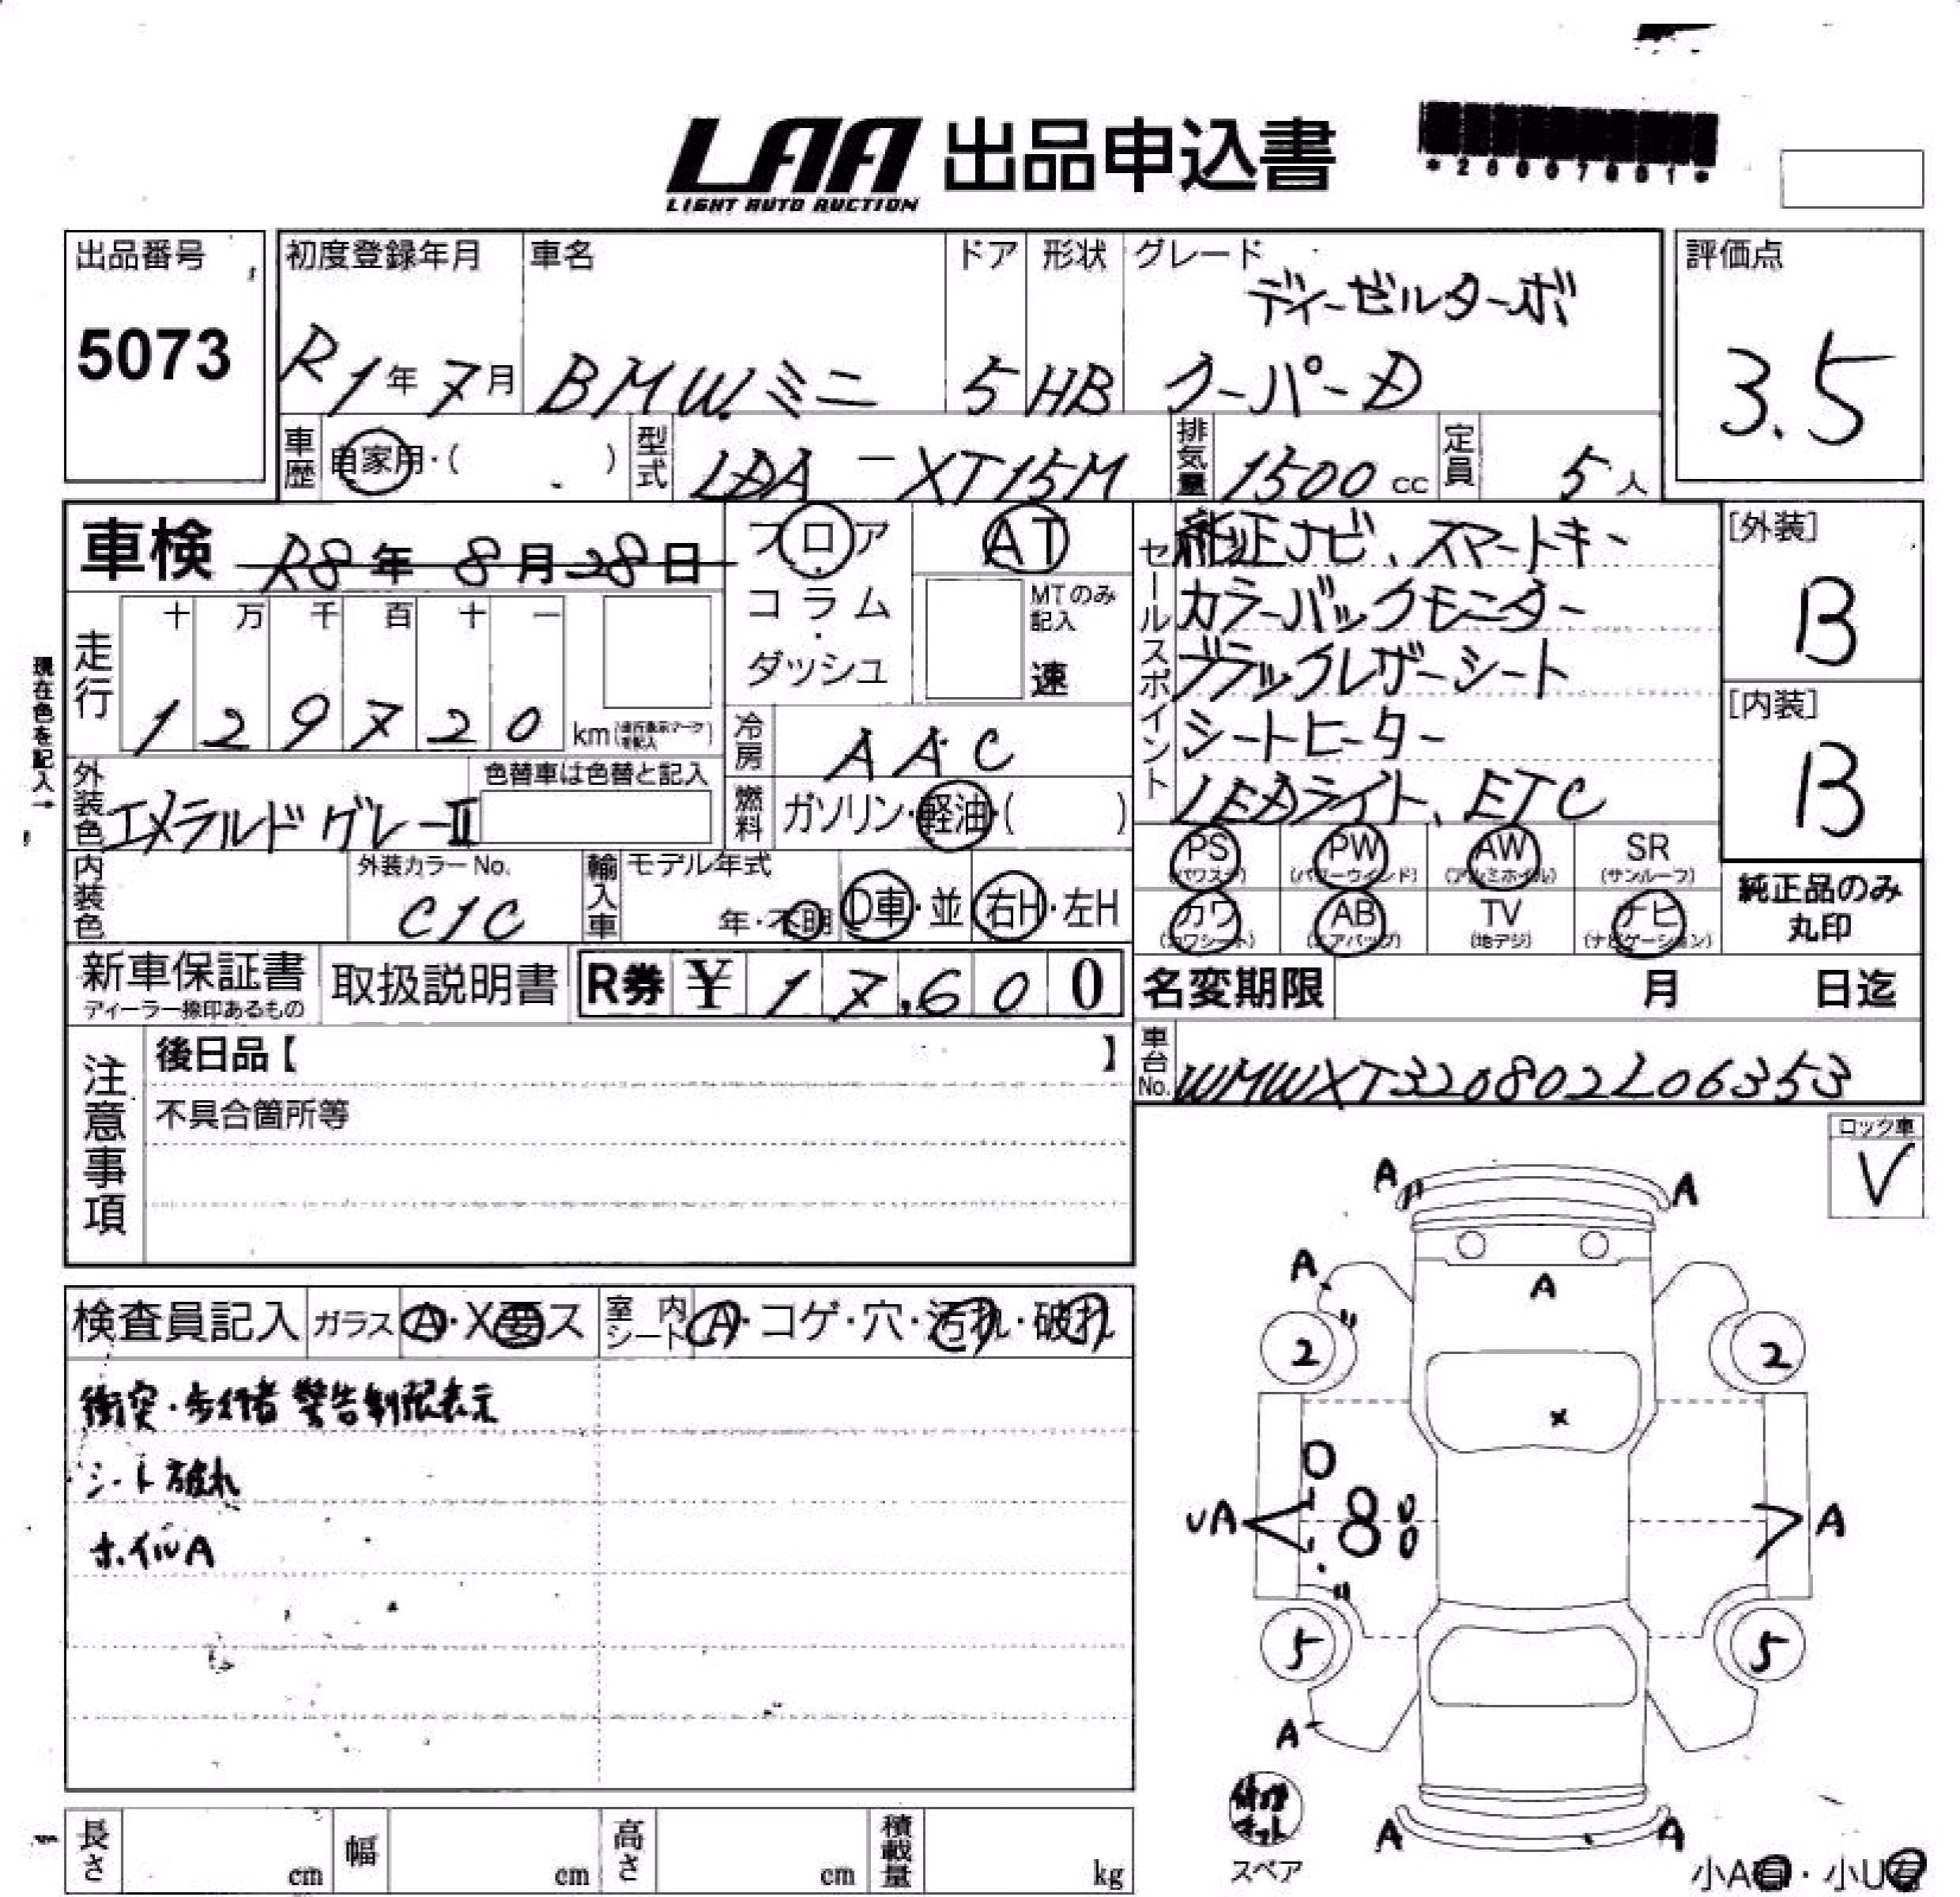 LAA 出品申込書
LIGHT AUTO AUCTION
出品番号
5073
初度登録年月 車名 ドア 形状 グレード
R1年7月 BMW.ミニ 5 HB ディーゼルターボ
クーパーD
評価点
3.5
車歴 自家用・( ) 型式 LDA-XT15M 排気量 1500cc 定員 5人
車検 R8年8月28日
フロア AT
コラム・
ダッシュ
MTのみ記入
速
現在色を記入→
走行 十 万 千 百 十 一
1 2 9 7 2 0 km
冷房 AAC
外装色 エメラルドグレーII 色替車は色替と記入
燃料 ガソリン・軽油・( )
内装色 外装カラーNo.
C1C
輸入車 モデル年式
年・不明 D車・並 右H・左H
セールスポイント
純正ナビ、スマートキー
カラーバックモニター
ブラックレザーシート
シートヒーター
LEDライト、ETC
[外装]
B
[内装]
B
PS PW AW SR
(パワステ) (パワーウインド) (アルミホイル) (サンルーフ)
カワ AB TV ナビ
(カワシート) (エアバッグ) (地デジ) (ナビゲーション)
純正品のみ
丸印
新車保証書 取扱説明書 R券 ¥ 17,600
ディーラー捺印あるもの
名変期限 月 日迄
車台No. WMWXT320802L06353
注意事項
後日品【 】
不具合箇所等
ロック車
V
検査員記入 ガラス A・X要ス 室内シート A・コゲ・穴・汚れ・破れ
衝突・歩行者 警告制限表示
シート破れ
ホイルA
A A
A A
2 2
x
UA A
5 5
A
A A
スペア
小A有・小U有
長さ cm 幅 cm 高さ cm 積載量 kg